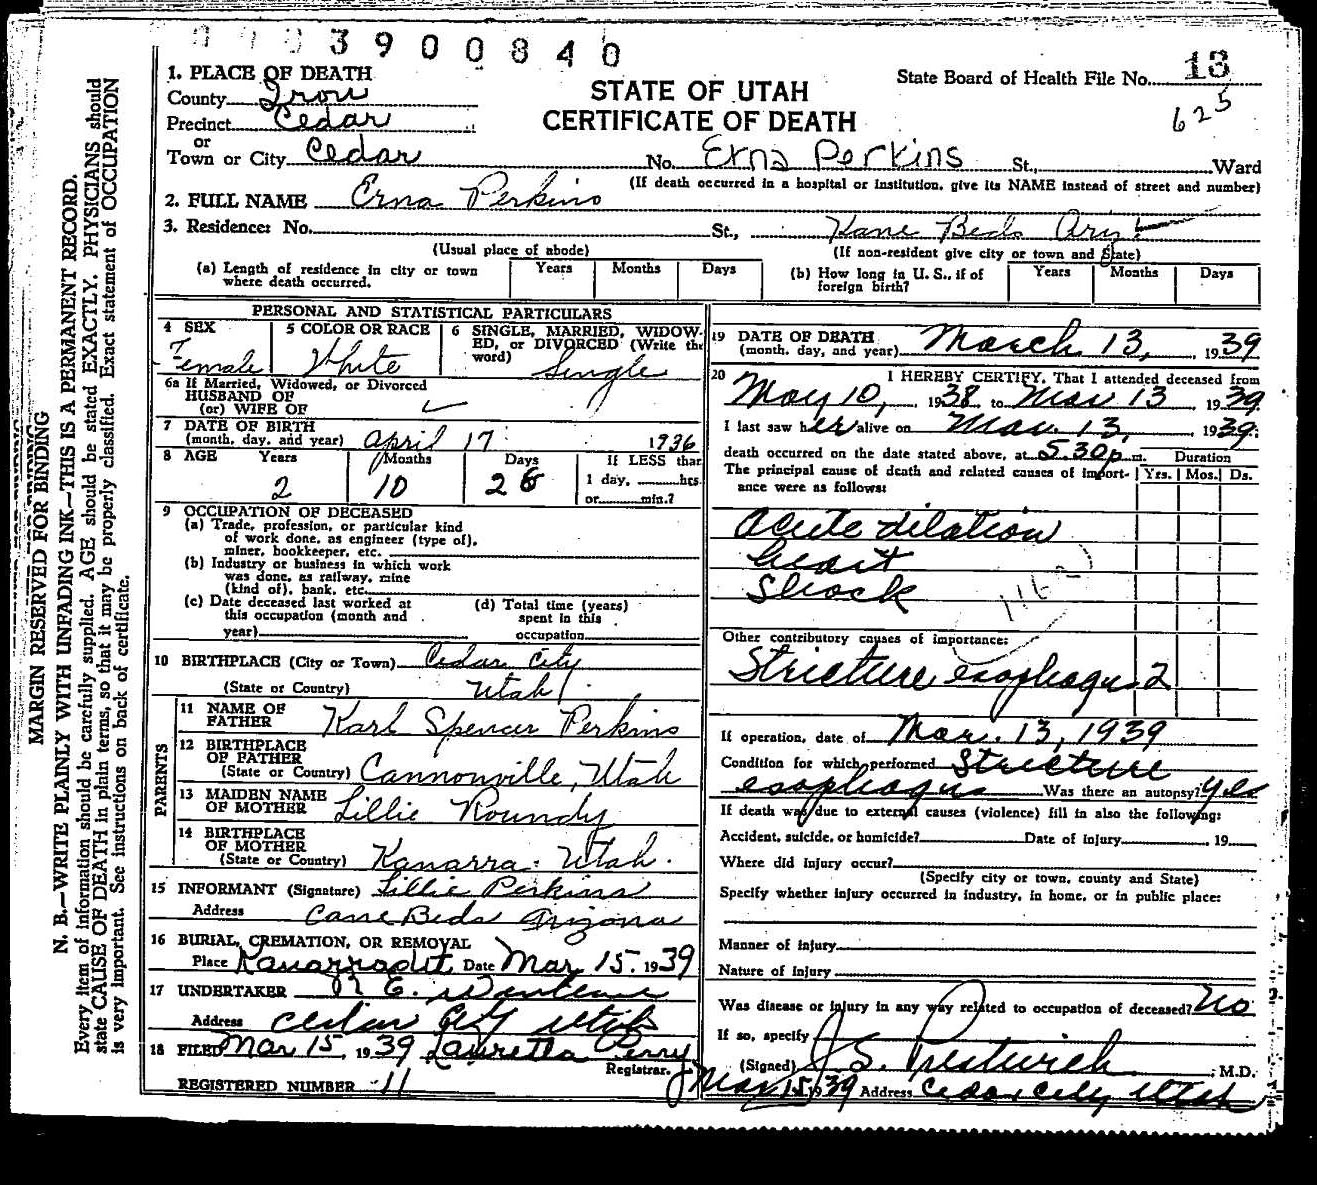 3900840
1. PLACE OF DEATH
County Iron
Precinct Cedar
or
Town or City Cedar
STATE OF UTAH
CERTIFICATE OF DEATH
State Board of Health File No. 13
625
No. Erna Perkins St., Ward
(If death occurred in a hospital or institution, give its NAME instead of street and number)
2. FULL NAME Erna Perkins
3. Residence: No. St., Kane Beds Ariz
(Usual place of abode)
(If non-resident give city or town and State)
(a) Length of residence in city or town where death occurred. Years Months Days
(b) How long in U. S., if of foreign birth? Years Months Days
PERSONAL AND STATISTICAL PARTICULARS
4 SEX Female
5 COLOR OR RACE White
6 SINGLE, MARRIED, WIDOWED, or DIVORCED (Write the word) Single
6a If Married, Widowed, or Divorced
HUSBAND OF
(or) WIFE OF
7 DATE OF BIRTH
(month, day, and year) April 17 1936
8 AGE Years 2 Months 10 Days 26 If LESS than 1 day, hrs. or min.?
9 OCCUPATION OF DECEASED
(a) Trade, profession, or particular kind
of work done, as engineer (type of),
miner, bookkeeper, etc.
(b) Industry or business in which work
was done, as railway, mine
(kind of), bank, etc.
(c) Date deceased last worked at
this occupation (month and
year)
(d) Total time (years)
spent in this
occupation
10 BIRTHPLACE (City or Town) Cedar City
(State or Country) Utah
PARENTS
11 NAME OF
FATHER Karl Spencer Perkins
12 BIRTHPLACE
OF FATHER
(State or Country) Cannonville, Utah
13 MAIDEN NAME
OF MOTHER Lillie Roundy
14 BIRTHPLACE
OF MOTHER
(State or Country) Kanarra. Utah.
15 INFORMANT (Signature) Lillie Perkins
Address Cane Beds Arizona
16 BURIAL, CREMATION, OR REMOVAL
Place Date Mar 15. 1939
17 UNDERTAKER N E.
Address Cedar City Utah
18 FILED Mar 15, 1939 Lauretta Perry
Registrar.
REGISTERED NUMBER 11
19 DATE OF DEATH
(month, day, and year) March 13, 1939
20 I HEREBY CERTIFY, That I attended deceased from
May 10, 1938 to Mar 13 1939
I last saw her alive on Mar. 13, 1939:
death occurred on the date stated above, at 5.30p m. Duration
The principal cause of death and related causes of importance were as follows: Yrs. Mos. Ds.
Acute dilation
heart
Shock
Other contributory causes of importance:
Stricture esophagus 2
If operation, date of Mar. 13, 1939
Condition for which performed Stricture
esophagus Was there an autopsy? yes
If death was due to external causes (violence) fill in also the following:
Accident, suicide, or homicide? Date of injury 19
Where did injury occur?
(Specify city or town, county and State)
Specify whether injury occurred in industry, in home, or in public place:
Manner of injury
Nature of injury
Was disease or injury in any way related to occupation of deceased? No
If so, specify
(Signed) J. S. Prestwich M.D.
Mar 15 1939 Address Cedar City Utah
MARGIN RESERVED FOR BINDING
N. B.—WRITE PLAINLY WITH UNFADING INK—THIS IS A PERMANENT RECORD.
Every item of information should be carefully supplied. AGE should be stated EXACTLY. PHYSICIANS should
state CAUSE OF DEATH in plain terms, so that it may be properly classified. Exact statement of OCCUPATION
is very important. See instructions on back of certificate.